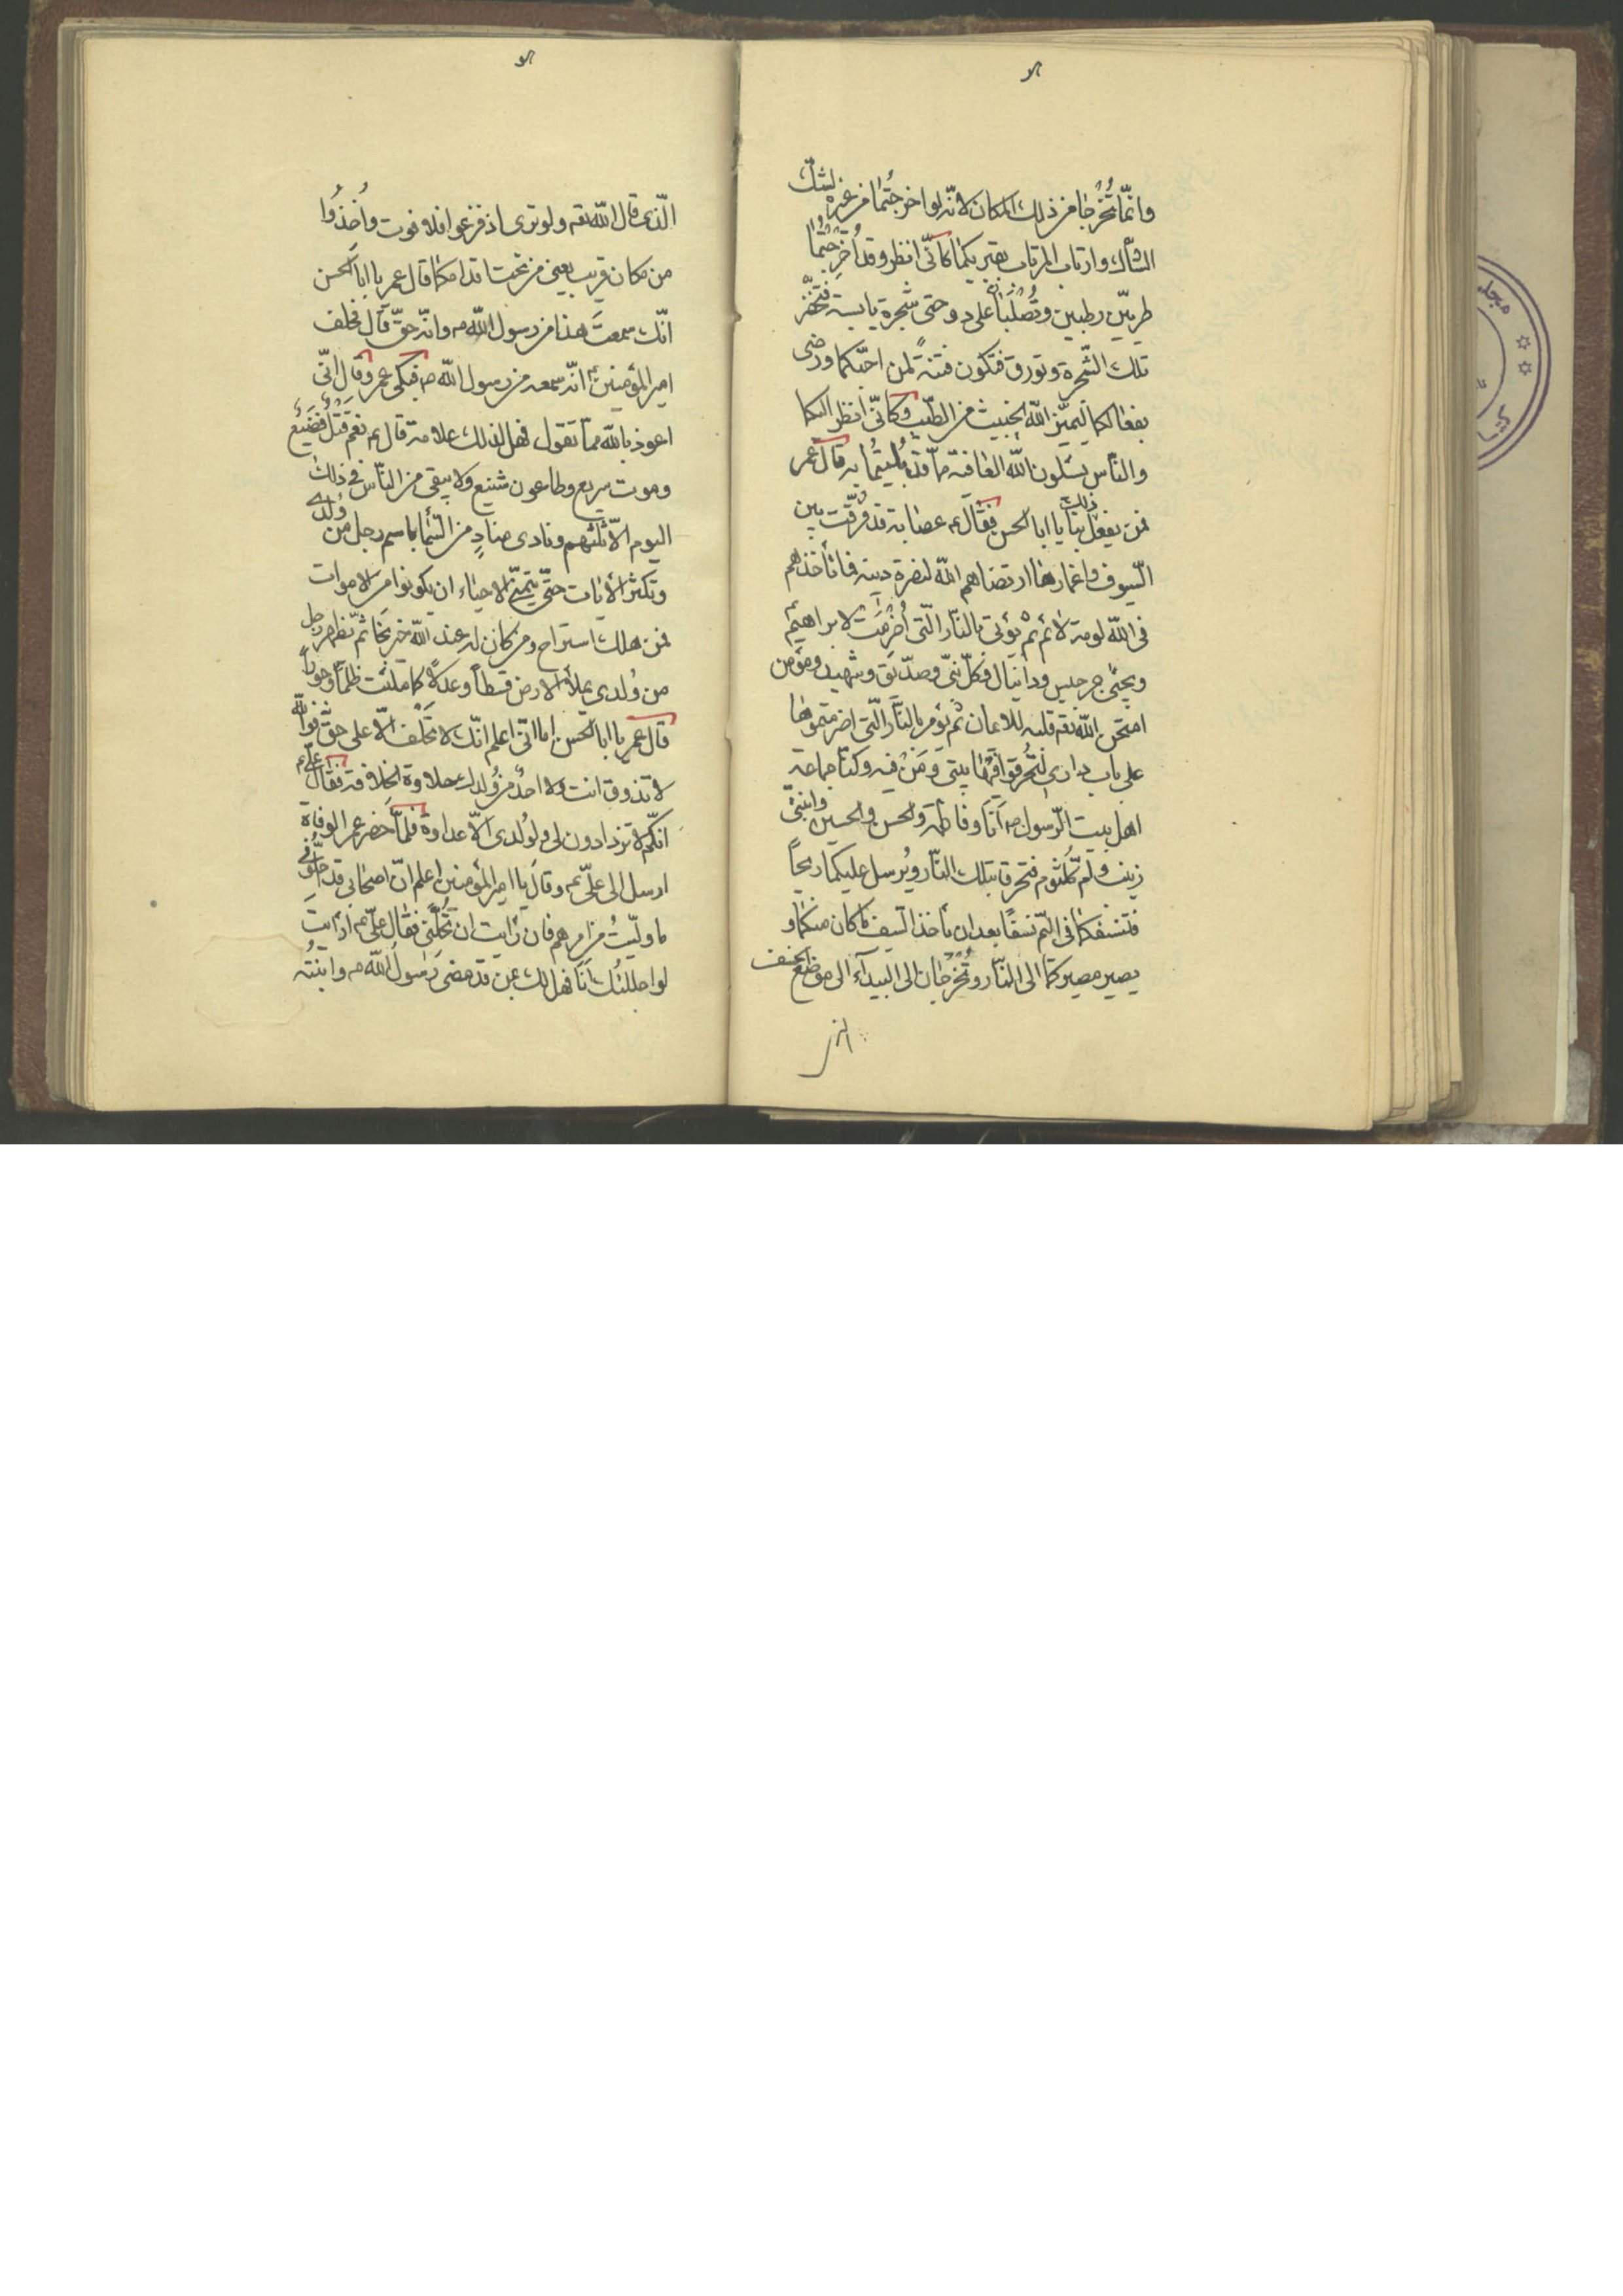 وانّما تُخْرَجا من ذلك المكان لانّه لو اخرجتما من غيره لشكّ
الشّاك وارتاب المرتاب بقبريكما كانّى انظر وقد اُخرِجتُما
طريّين رطبين وتُصْلَبان على دوحتى شجرة يابسة فتخضرّ
تلك الشّجرة وتورق فتكون فتنةً لمن احبّكما ورضى
بفعالكما ليميّز الله الخبيث من الطّيب وكانّى انظر اليكما
والنّاس يسئلون الله العافية ممّا قد بُليتُما به قال عمر
فمن يفعل ذلك بنا يا ابا الحسن فقال ع عصابة قد فرّقت بين
السّيوف واغمادها ارتضاهم الله لنصرة دينه فما تأخذهم
فى الله لومة لائم ثم يؤتى بالنّار الّتى اُضرِمَت لابراهيم
ويحيى جرجيس ودانيال وكلّ نبىّ وصدّيق وشهيد ومؤمن
امتحن الله تعم قلبه للايمان ثم يؤمر بالنّار الّتى اضرمتموها
على باب دارى لتُحرِقوا فيها بيتى ومَنْ فيه وكنّا جماعة
اهل بيت الرّسول ص انا وفاطمة والحسن والحسين وابنتىّ
زينب وامّ كلثوم فتحرقا بتلك النّار ويُرسل عليكما ريحاً
فتنسفكما فى اليمّ نسفاً بعد ان يأخذ السّيف ما كان منكما و
يصير مصيركما الى النّار وتُخْرَجان الى البيدآء الى موضع الخسف
الّذى قال الله تعم ولو ترى اذ فزعوا فلا فوت واُخِذُوا
من مكان قريب يعنى من تحت اقدامكما قال عمر يا ابا الحسن
انّك سمعتَ هذا من رسول الله ص وانّه حقّ قال فحلف
امير المؤمنين ع انّه سمعه من رسول الله ص فبكى عمر وقال انّى
اعوذ بالله ممّا تقول فهل لذلك علامة قال ع نعم قَتْلٌ فضيع
وموت سريع وطاعون شنيع ولا يبقى من النّاس فى ذلك
اليوم الّا ثلثهم ونادى منادٍ من السّماء باسم رجل من وُلدى
وتكثر الآيات حتّى يتمنّى الاحياء ان يكونوا من الاموات
فمن هلك استراح ومن كان له عند الله خير نجا ثم يظهر رجل
من وُلدى يملأ الارض قسطاً وعدلاً كما ملئت ظلماً وجوراً
قال عمر يا ابا الحسن اما انّى اعلم انّك لا تحلف الّا على حقّ فوالله
لا تذوق انت ولا احدٌ من وُلدك حلاوة الخلافة فقال علىّ ع
انّكم لا تزدادون لى ولوُلدى الّا عداوة فلمّا حضر عمر الوفاة
ارسل الى علىّ ع وقال يا امير المؤمنين اعلم انّ اصحابى قد
ما وليتُ من امرهم فان رايت ان تُحلّنى فقال علىّ ع ارايت
لو احللتُك انا فهل لك بمن قد مضى رسول الله ص وابنته